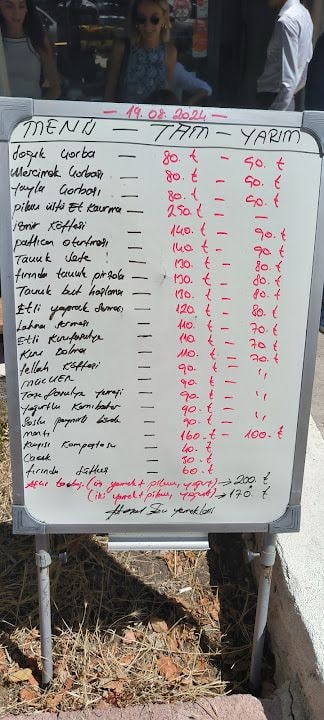 - 19.08.2024 -
MENÜ - TAM - YARIM
Soğuk Çorba - 80.t - 60.t
Mercimek Çorbası - 80.t - 60.t
Yayla Çorbası - 80.t - 60.t
pilav üstü Et kavurma - 250.t - -
izmir köftesi - 140.t - 90.t
patlıcan oturtması - 140.t - 90.t
Tavuk Sote - 130.t - 80.t
fırında tavuk pirzola - 130.t - 80.t
Tavuk but haşlama - 130.t - 80.t
Etli yaprak sarması - 120.t - 80.t
Lahna sarması - 110.t - 70.t
Etli Kurufasulye - 110.t - 70.t
Kuru Dolma - 110.t - 70.t
fellah köftesi - 90.t - "
MÜCVER - 90.t - "
Taze fasulye yemeği - 90.t - "
Yoğurtlu Karnıbahar - 90.t - "
Soslu peynirli - 90.t - "
mantı - 160.t - 100.t
Kayısı Kompostosu - 40.t
Cacık - 50.t
fırında Sütlaç - 60.t
(üç yemek + pilav, yoğurt) → 200.t
(iki yemek + pilav, yoğurt) → 170.t
yemekleri